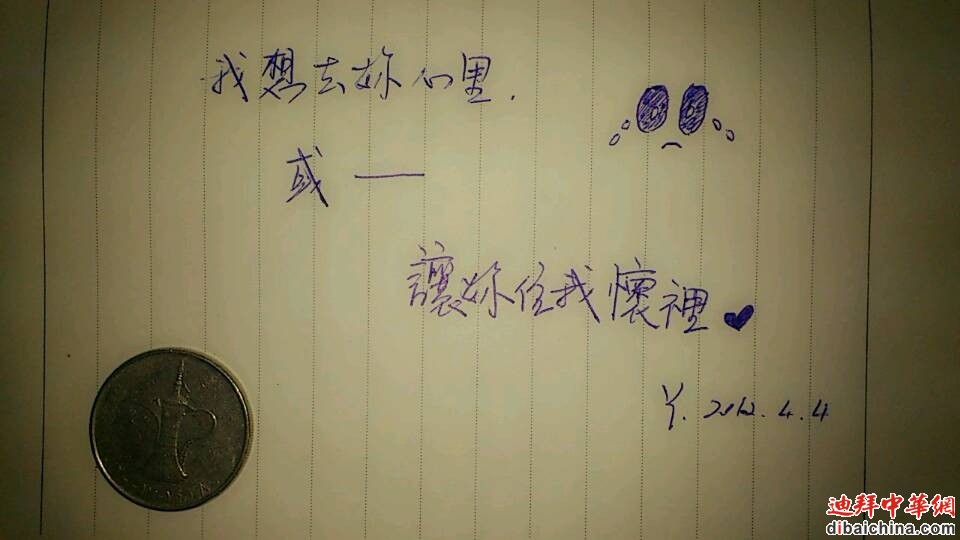 我想去妳心里.
或——
讓妳住我懷裡
Y. 2012.4.4
迪拜中華網
dibaichina.com